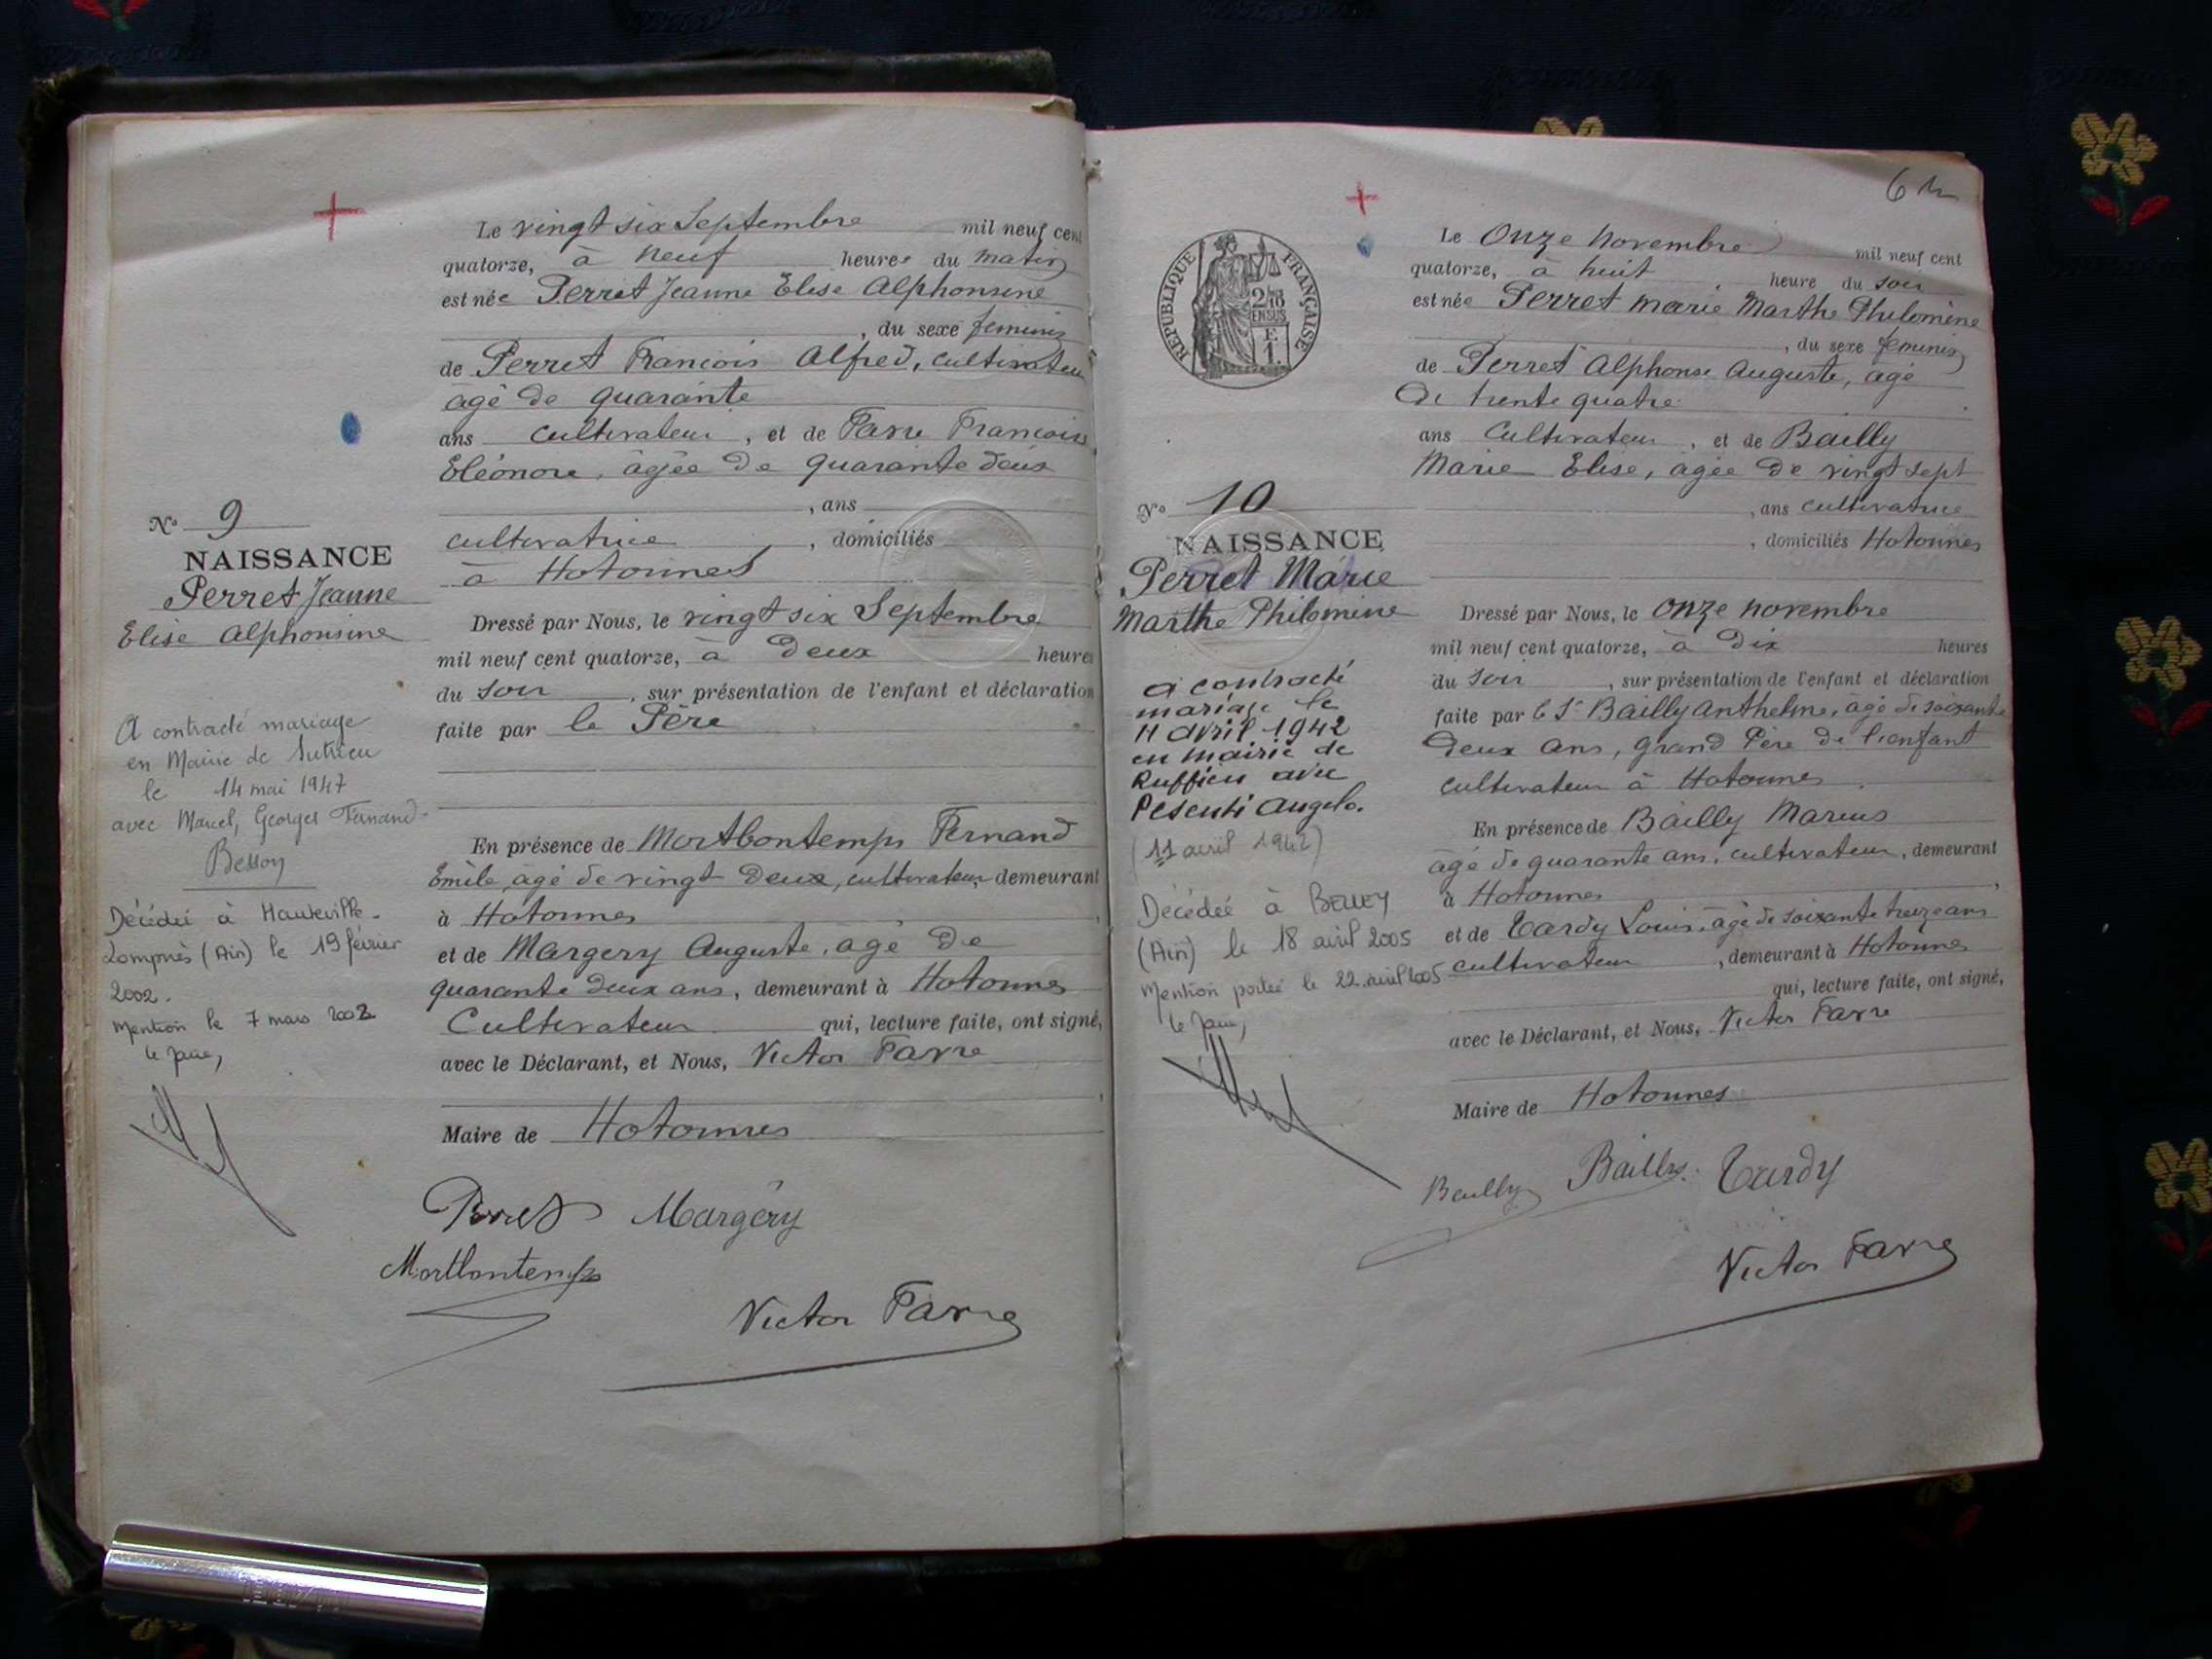 Le vingt six Septembre mil neuf cent
quatorze, à neuf heures du matin
est née Perret Jeanne Elise Alphonsine
, du sexe feminin
de Perret François Alfred, cultivateur
âgé de quarante
ans cultivateur, et de Favre François
Eléonore, âgée de quarante deux
, ans
cultivatrice, domiciliés
à Hotonnes
N° 9
NAISSANCE
Perret Jeanne
Elise Alphonsine
Dressé par Nous, le vingt six Septembre
mil neuf cent quatorze, à deux heures
du soir, sur présentation de l'enfant et déclaration
faite par le Père
A contracté mariage
en Mairie de Sutrieu
le 14 mai 1947
avec Marcel, Georges Fernand
En présence de Mortbontemps Fernand
Emile, âgé de vingt deux, cultivateur, demeurant
à Hotonnes
et de Margery Auguste, âgé de
quarante deux ans, demeurant à Hotonnes
Cultivateur qui, lecture faite, ont signé,
avec le Déclarant, et Nous, Victor Favre
Maire de Hotonnes
Décédée à Hauteville-
Lompnès (Ain) le 19 février
2002.
Mention le 7 mars 2002
Le Maire,
Perret Margery
Mortbontemps
Victor Favre
6
RÉPUBLIQUE FRANÇAISE
2/10
EN SUS
F.
1.
Le Onze Novembre mil neuf cent
quatorze, à huit heure du soir
est née Perret Marie Marthe Philomène
, du sexe feminin
de Perret Alphonse Auguste, âgé
de trente quatre
ans Cultivateur, et de Bailly
Marie Elise, âgée de vingt sept
, ans cultivatrice
, domiciliés Hotonnes
N° 10
NAISSANCE
Perret Marie
Marthe Philomine
Dressé par Nous, le onze novembre
mil neuf cent quatorze, à dix heures
du soir, sur présentation de l'enfant et déclaration
faite par le Sr Bailly Anthelme, âgé de soixante
deux ans, grand Père de l'enfant
cultivateur à Hotonnes
En présence de Bailly Marius
âgé de quarante ans, cultivateur, demeurant
à Hotonnes
et de Tardy Louis, âgé de soixante treize ans
cultivateur, demeurant à Hotonnes
qui, lecture faite, ont signé,
avec le Déclarant, et Nous, Victor Favre
Maire de Hotonnes
a contracté
mariage le
11 avril 1942
en mairie de
Ruffieu avec
Pesenti Angelo.
(11 avril 1942)
Décédée à BELLEY
(Ain) le 18 avril 2005
Mention portée le 22 avril 2005
Le Maire,
Bailly Bailly Tardy
Victor Favre